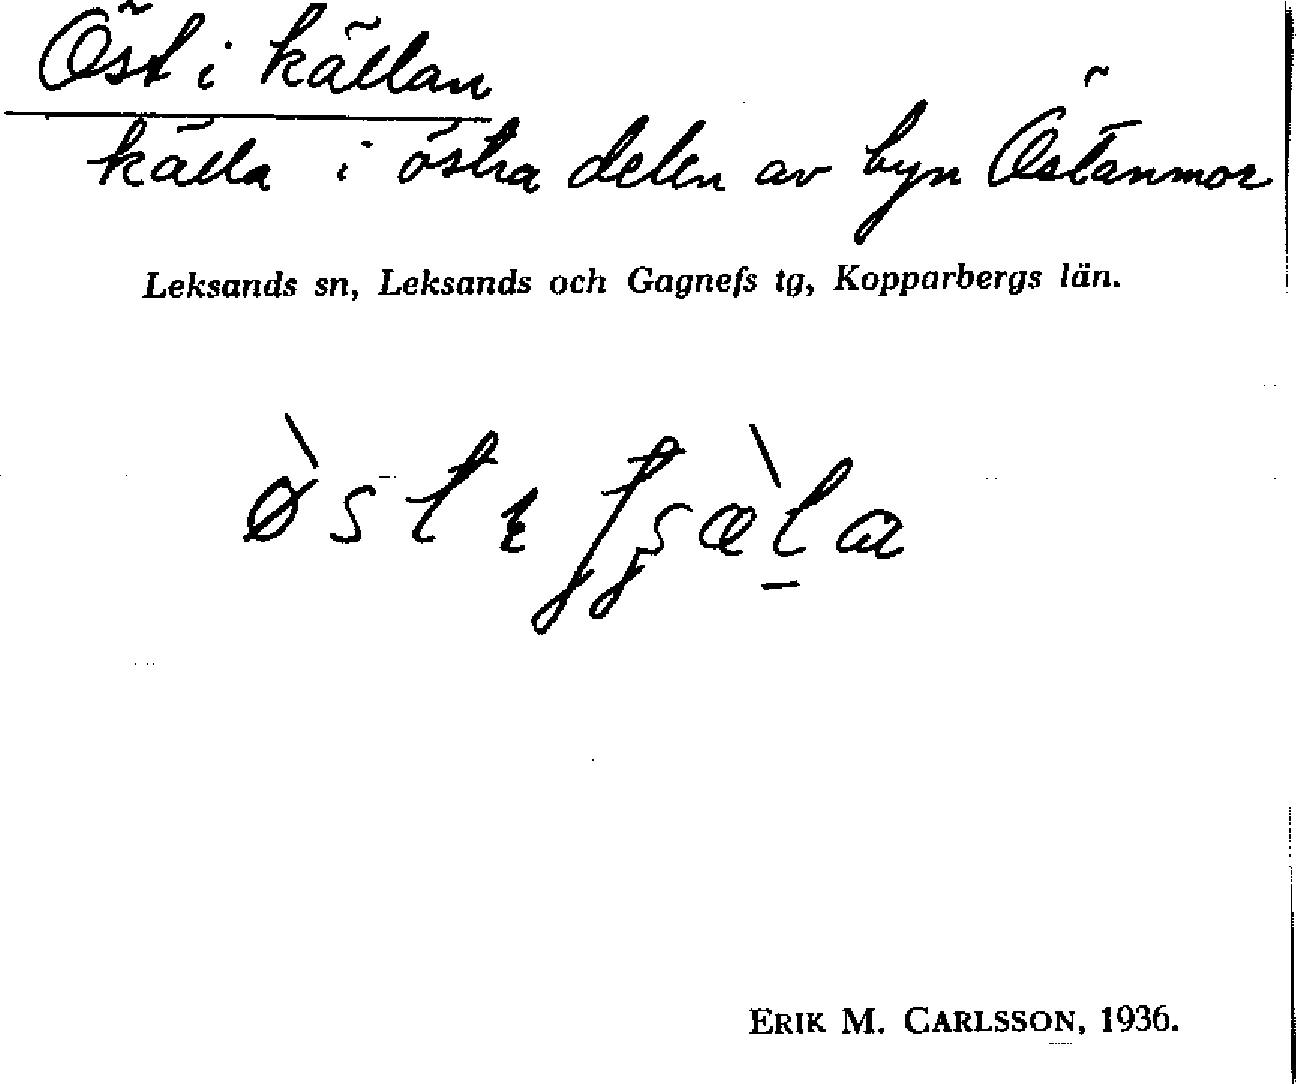 Öst i källan
källa i östra delen av byn Östanmor
Leksands sn, Leksands och Gagnefs tg, Kopparbergs län.
ERIK M. CARLSSON, 1936.